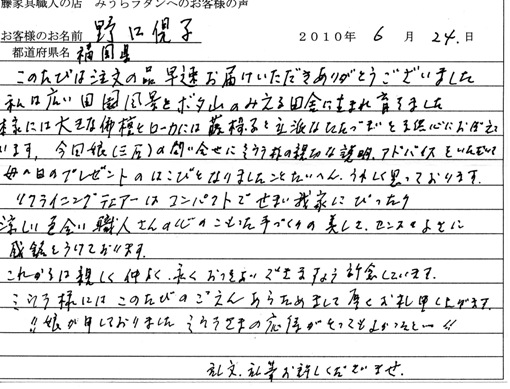 藤家具職人の店 みうらラタンへのお客様の声
お客様のお名前 野口俔子 2010年 6月 24日
都道府県名 福岡県
このたびは注文の品早速お届けいただきありがとうございました
私は広い田園風景とボタ山のみえる田舎に生まれ育ちました
様には大きな佛壇とローカには藤椅子と立派な
います。今回娘(三宅)の問い合せにそうう様の親切な説明、アドバイスをいただいて
母の日のプレゼントのはこびとなりましたことたいへんうれしく思っております。
リクライニングチェアーはコンパクトでせまい我家にぴったり
涼しい色合い職人さんの心のこもった手づくりの美しさ、センスのよさに
感銘をうけております。
これからは親しく仲よく永くおつきあいできますよう計念しています。
みうら様にはこのたびのごえんあらためまして厚くお礼申し上げます。
!!娘が申しておりました みうらさまの応待がとってもよかったと…!!
乱文、乱筆お許しくださいませ。